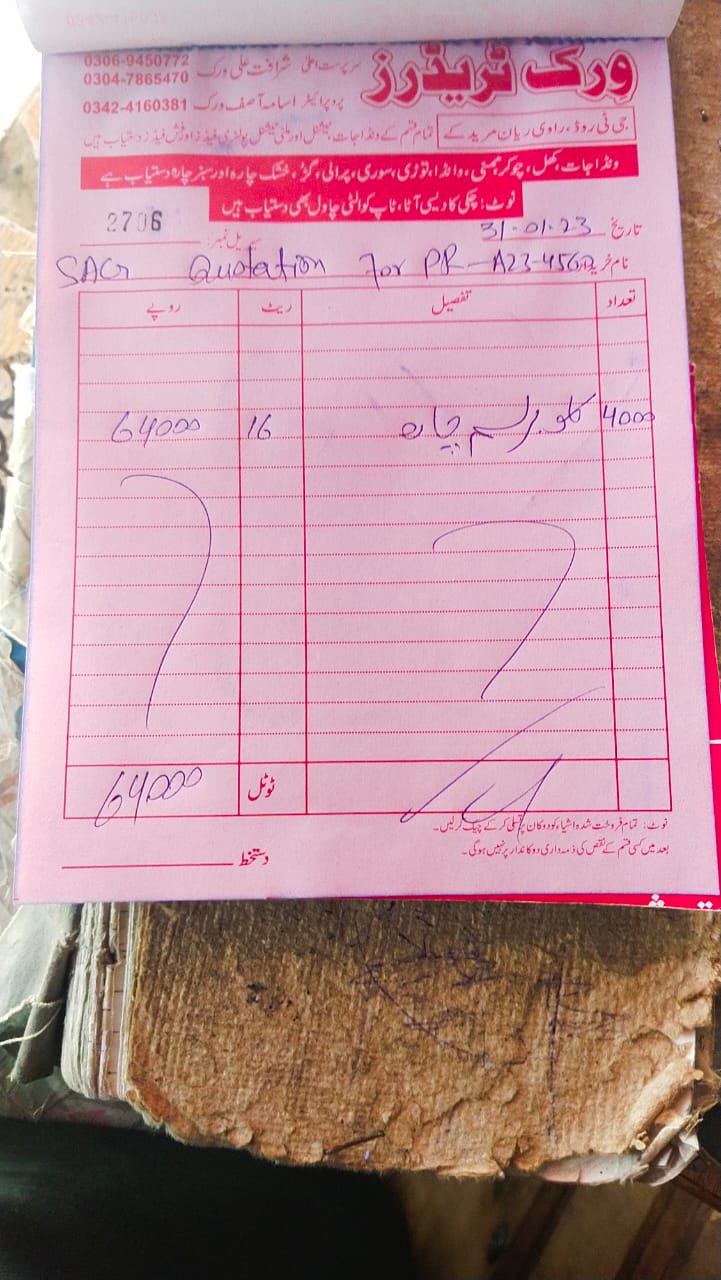 وِرک ٹریڈرز
سرپرست اعلیٰ شرافت علی ورک 0306-9450772
0304-7865470
پروپرائیٹر اسامہ آصف ورک 0342-4160381
جی ٹی روڈ، راوی ریان مریدکے
تمام قسم کے ونڈا جات، نیشنل اور ملٹی نیشنل پولٹری فیڈز اور فش فیڈز دستیاب ہیں
ونڈا جات، کھل، چوکر، مکئی، وانڈا، توڑی، سوری، پرالی، گڑ، خشک چارہ اور سبز چارہ دستیاب ہے
نوٹ: چکی کا دیسی آٹا، ٹاپ کوالٹی چاول بھی دستیاب ہیں
تاریخ 31-01-23
سیریل نمبر: 2706
نام خریدار SAG Quotation For PR-A23-4560
تعداد تفصیل ریٹ روپے
4000 کلو برسیم چارہ 16 64000
ٹوٹل 64000
نوٹ: تمام فروخت شدہ اشیاء کو دوکان پر تسلی کر کے چیک کر لیں۔
بعد میں کسی قسم کے نقص کی ذمہ داری دوکاندار پر نہیں ہوگی۔
دستخط